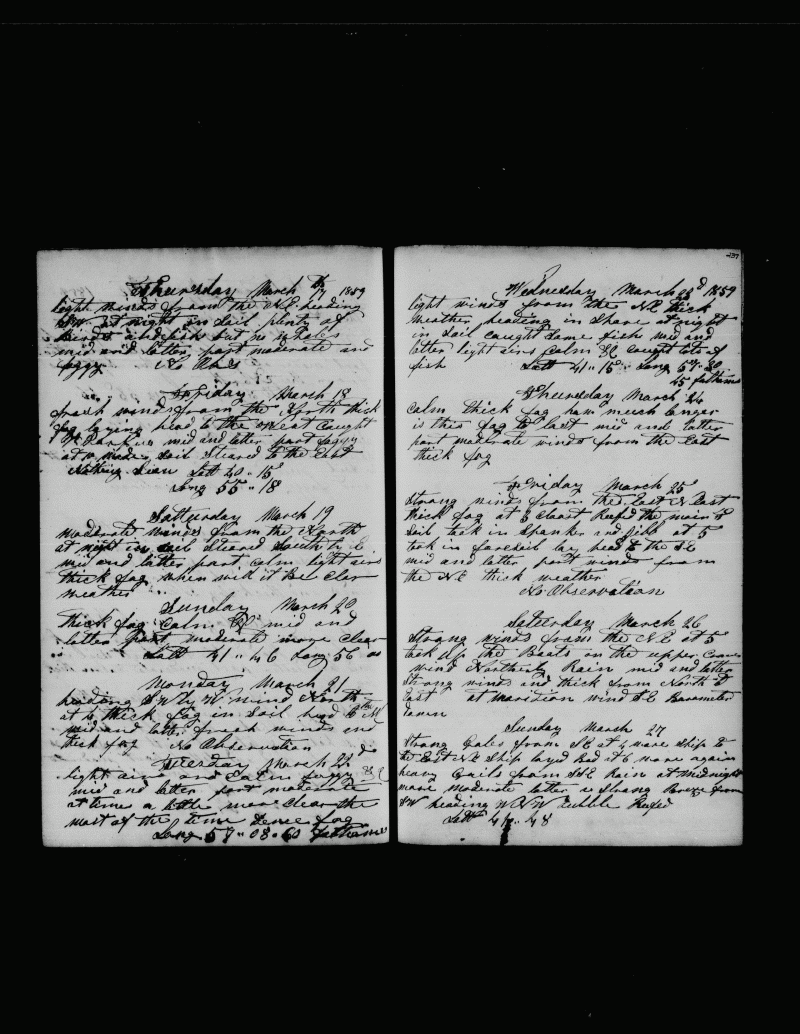 Thursday March 17th 1859
light winds from the N.E. heading
SW at night in Sail plenty of
birds and fish but no whales
mid and latter part moderate and
foggy No Obs
Friday March 18
fresh winds from the North thick
fog laying head to the West Caught
mid and latter part foggy
at made Sail Steared to the East
Nothing Sean Latt 40 " 15
Long 55 " 18
Satturday March 19
moderate winds from the North
at night in Sail Steared South
mid and latter part calm light airs
thick fog when will it be clar
weather
Sunday March 20
thick fog Calm &c mid and
latter part moderate more Clear
Latt 41 " 46 Long 56
Monday March 21
heading wind North
at thick fog in Sail head to the
mid and latter fresh winds and
thick fog No Observation
Tuesday March 22
light airs and Calm foggy
mid and latter part moderate
at time a little more Clear the
most of the time Dence fog
Long 57 " 08 " 60 fathoms
237
Wednesday March 23d 1859
light winds from the NE thick
Weather heading in Shore at night
in Sail caught Some fish mid and
latter light airs Calm &c caught lots of
fish Latt 41 " 15 Long 57 " 30
45 fathoms
Thursday March 24
Calm thick fog how much longer
is this fog to last mid and latter
part moderate winds from the East
thick fog
Friday March 25
Strong wind from the East N. East
thick fog at Close Reefd the main T
Sail took in Spanker and Jibb at 5
took in foresail lay head to the SE
mid and latter part winds from
the NE thick weather
No Observation
Saturday March 26
Strong winds from the NE at 5
took up the Boats on the upper Cranes
wind Northerly Rain mid and latter
Strong winds and thick from North to
East at maridian wind SE Barometer
down
Sunday March 27
Strong Gales from SE at 4 ware Ship to
the East NE Ship layed Bad at 6 ware again
heavy Gails from SSE Rain at Midnight
more moderate latter a Strong Breeze from
SW heading WNW Dubble Reefed
Latt 40 " 48